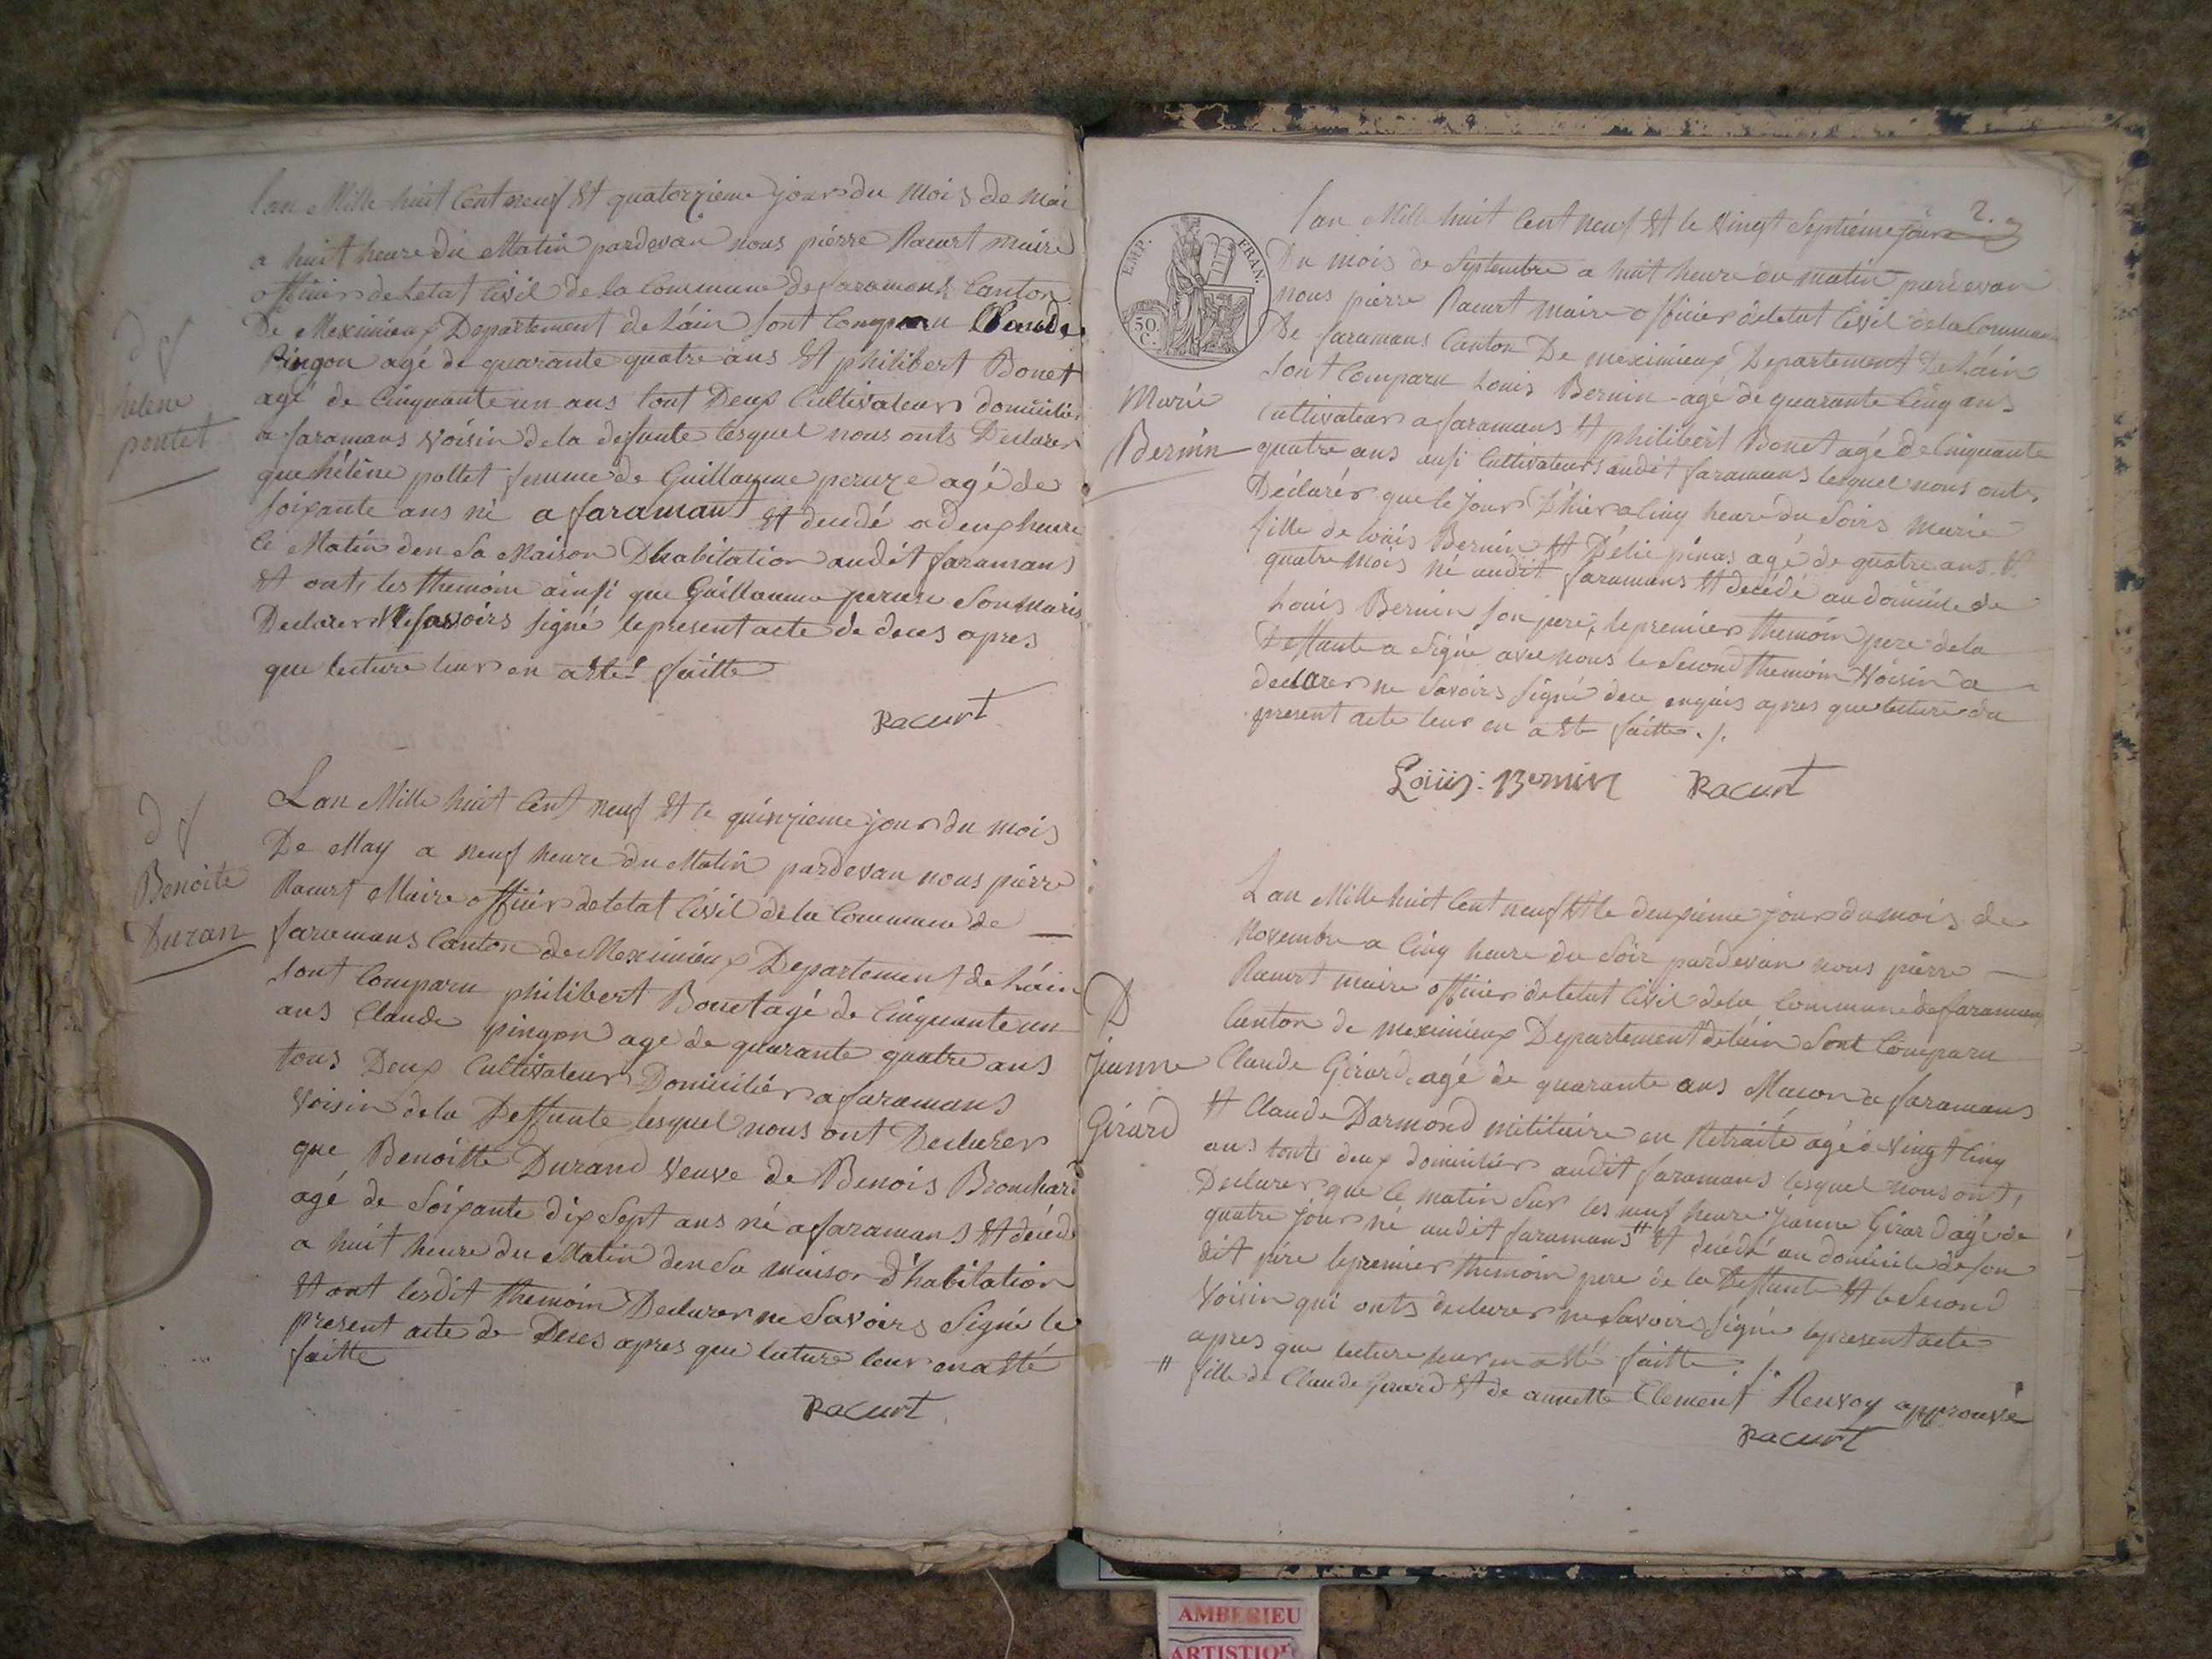 d f
hélène
pontet
lan Mille huit Cent neuf Et quatorzieme jour du Mois de Mai
a huit heure du Matin pardevan nous piérre Racurt maire
officier de letat Civil de la Commune de faramans Canton
De Meximieux Departement de Láin sont Comparu Claude
Pingon agé de quarante quatre ans Et philibert Bonet
agé de Cinquante un ans tout Deux Cultivateur domicilier
a faramans Voisin de la defunte lesquel nous onts Declarer
que hélène pottet femme de Guillaume peruze agé de
soixante ans né a faramans Et decedé a deux heure
Ce Matin den Sa Maison Dhabitation audit faramans
Et onts les themoin ainsi que Guillaume peruze Son Maris
Declarer Ne savoirs signé le present acte de deces apres
que lecture leur en a Eté faitte
Racurt
d f
Benoite
Duran
Lan Mille huit Cent neuf Et le quinzieme jour du mois
De May a neuf heure du Matin pardevan nous piérre
Racurt Maire officier de letat Civil de la Commune de
faramans Canton de Meximieux Departement de Láin
sont Comparu philibert Bonet agé de Cinquante un
ans Claude pingon age de quarante quatre ans
tous Deux Cultivateur Domicilier a faramans
Voisin de la Deffunte lesquel nous ont Declarer
que Benoitte Durand Veuve de Benois Brouchard
agé de Soixante dix Sept ans né a faramans Et décédé
a huit heure du Matin den Sa maison d'habitation
Et ont lesdit themoin Declarer ne Savoirs Signé le
present acte de Deces apres que lecture leur en a Eté
faitte
Racurt
2.
EMP. FRAN.
50.
C.
Marie
Bernin
lan Mille huit Cent neuf Et le Vingt Septiéme jour
Du mois de Septembre a huit heure du matin pardevan
nous piérre Racurt maire officier de letat Civil de la Commune
De faramans Canton De meximieux Departement De Láin
Sont Comparu Louis Bernin agé de quarante Cinq ans
Cultivateur a faramans Et philibert Bonet agé de Cinquante
quatre ans ausi Cultivateurs audit faramans lesquel nous onts
Déclarér que le jour D'hier a Cinq heure du Soirs Marie
fille de Louis Bernin Et Délie pinas agé de quatre ans Et
quatre Mois né audit faramans Et décédé au domicile de
Louis Bernin son pere, le premier themoin pere de la
Deffunte a Signé avec nous le Second themoin Voisin a
declarer ne Savoirs Signé de ce enquis apres que lecture du
present acte leur en a Ete faitte ./.
Loüis: Bernin Racurt
D
jeanne
Girard
Lan Mille huit Cent neuf Et le deuxieme jour du mois de
Novembre a Cinq heure du Soir pardevan nous piérre
Racurt maire officier de letat Civil de la Commune de faramans
Canton de meximieux Departement de Láin Sont Comparu
Claude Girard agé de quarante ans Macon a faramans
Et Claude Darmond militaire en Retraite agé de Vingt Cinq
ans touts deux domicilier audit faramans lesquel nous ont,
Declarer que Ce matin Sur les neuf heure Jeanne Girard agé de
quatre jour né audit faramans " Et decédé au domicile de Son
dit pére le premier themoin pere de la Deffunte Et le Second
Voisin qui onts declarer ne Savoirs Signé le present acte
apres que lecture leur en a Eté faitte ./.
" fille de Claude Girard Et de annette Clement Renvoy approuvé
Racurt
AMBERIEU
ARTISTIQ